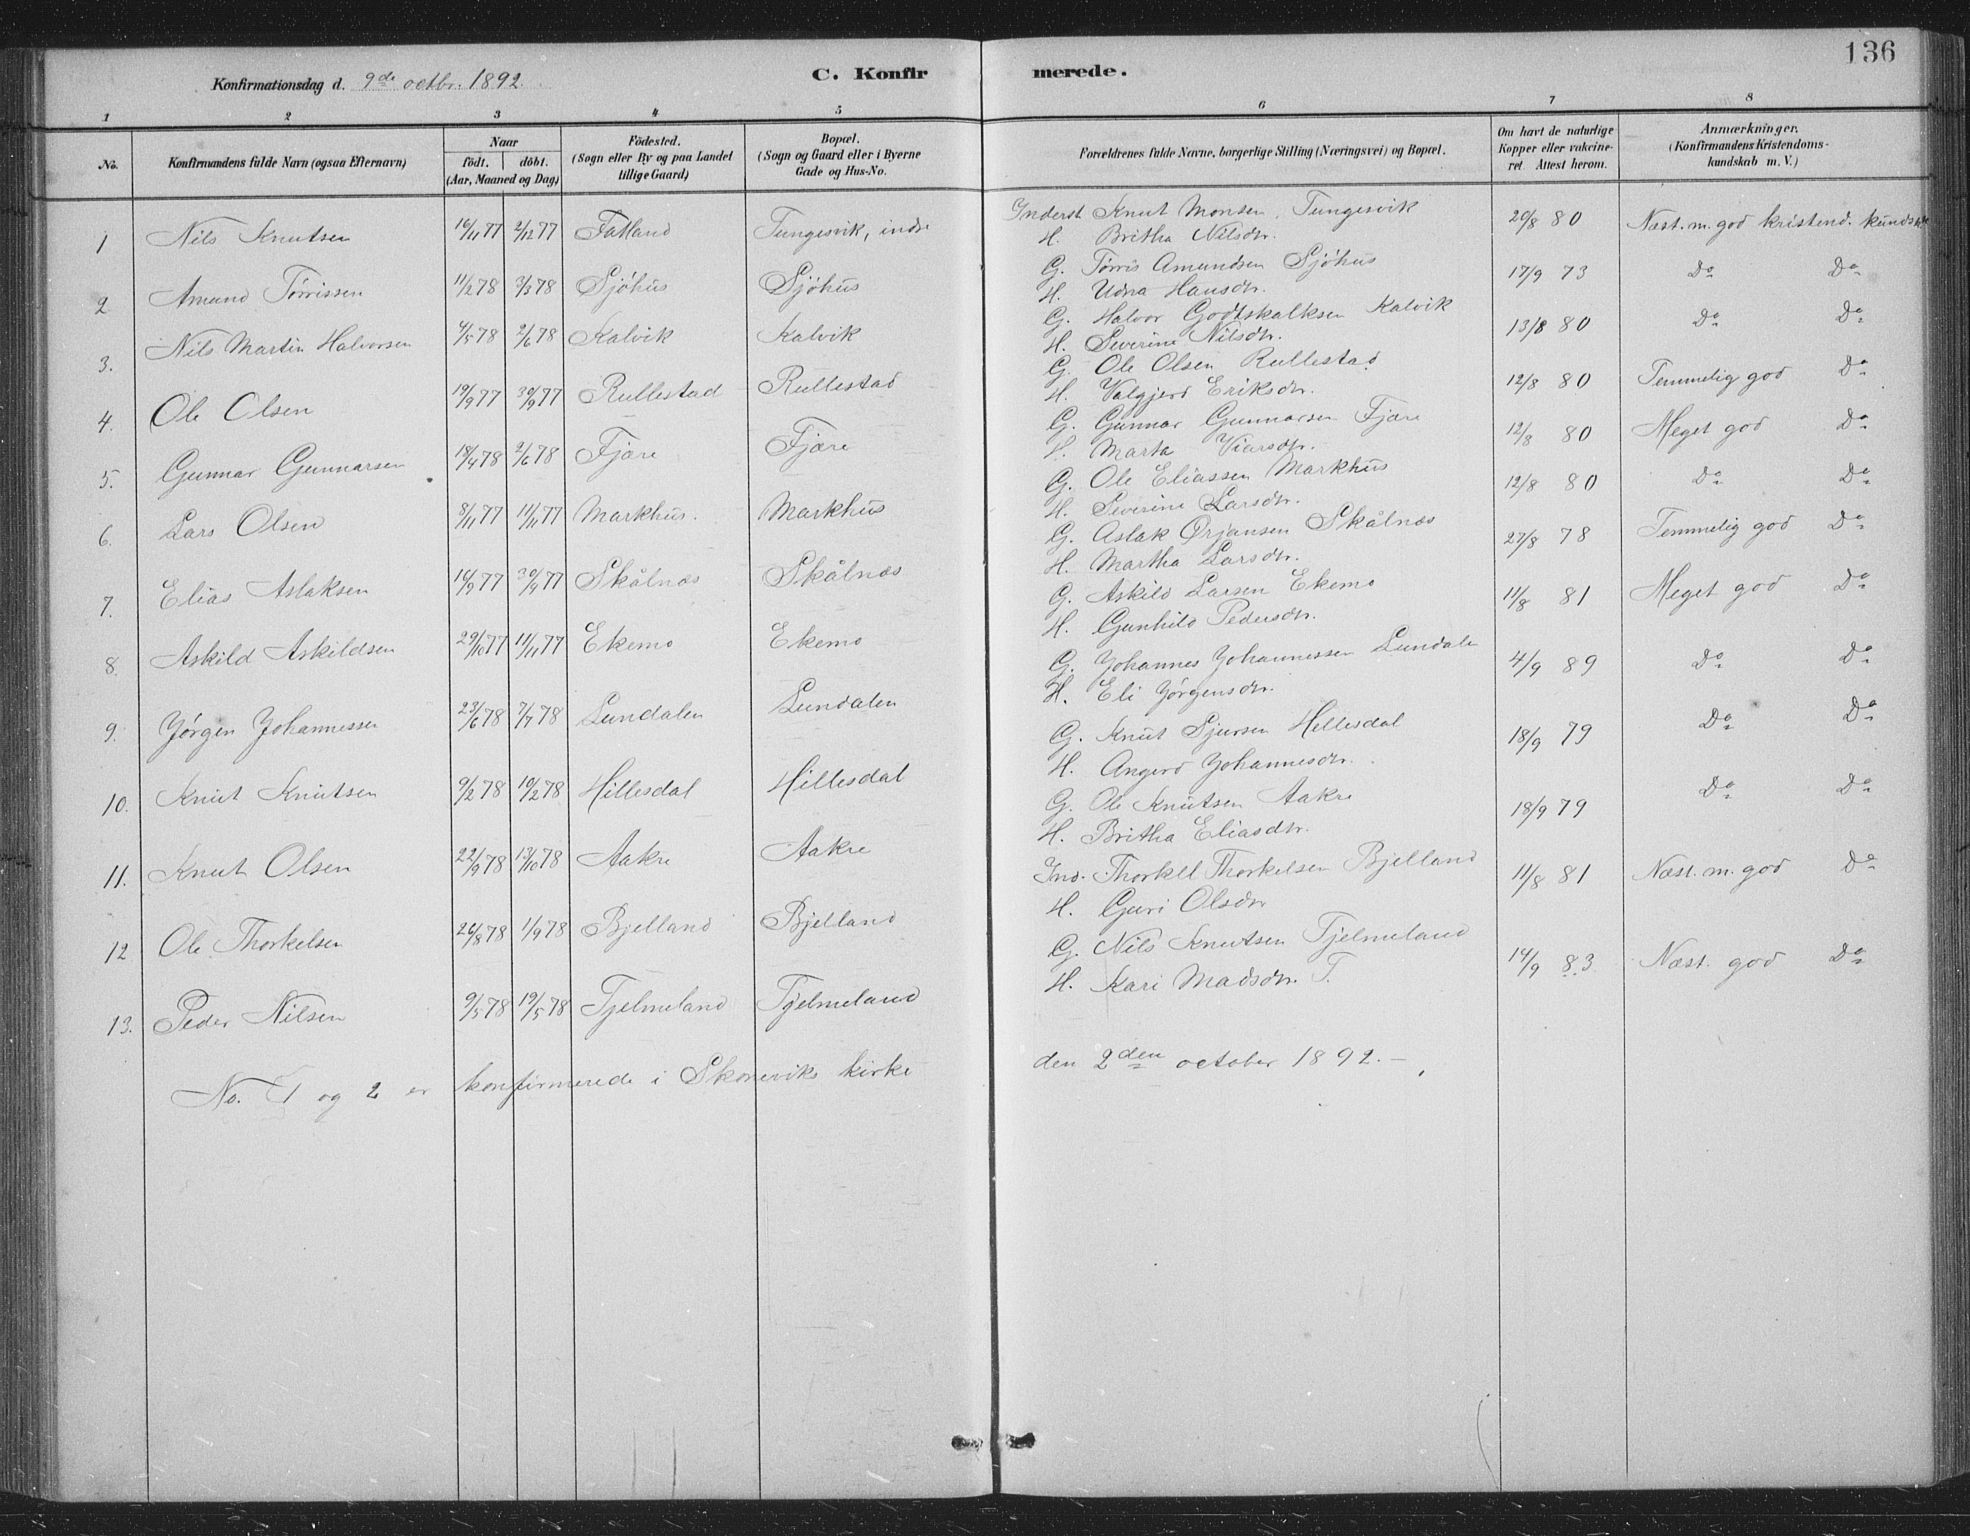 136
Konfirmationsdag d. 9de octbr. 1892.
C. Konfirmerede.
1 2 3 4 5 6 7 8
No.
Konfirmandens fulde Navn (ogsaa Efternavn)
Naar
födt. döbt.
(Aar, Maaned og Dag)
Födested.
(Sogn eller By og paa Landet
tillige Gaard)
Bopæl.
(Sogn og Gaard eller i Byerne
Gade og Hus-No.
Forældrenes fulde Navne, borgerlige Stilling (Næringsvei) og Bopæl.
Om havt de naturlige
Kopper eller vakcine-
ret. Attest herom.
Anmærkninger.
(Konfirmandens Kristendoms-
kundskab m. V.)
1 Nils Knutsen 16/11 77 2/12 77 Fatland Tungesvik, indre Inderst Knut Monsen, Tungesvik 20/8 80 Næst. m. god kristend. kundsk.
H. Britha Nilsdtr.
2 Amund Tørrissen 11/2 78 3/3 78 Sjöhus Sjöhus G. Tørris Amundsen Sjöhus 17/9 73 Do Do
H. Udna Hansdtr.
3. Nils Martin Halvorsen 4/5 78 2/6 78 Kalvik Kalvik G. Halvor Godtskalksen Kalvik 13/8 80 Do Do
H. Severine Nilsdtr.
4. Ole Olsen 19/9 77 30/9 77 Rullestad Rullestad G. Ole Olsen Rullestad 12/8 80 Temmelig god Do
H. Valgjerd Eriksdtr.
5. Gunnar Gunnarsen 18/4 78 2/6 78 Fjære Fjære G. Gunnar Gunnarsen Fjære 12/8 80 Meget god Do
H. Marta
6. Lars Olsen 8/11 77 11/11 77 Markhus. Markhus G. Ole Eliassen Markhus 12/8 80 Do Do
H. Severine Larsdtr.
7. Elias Aslaksen 16/9 77 30/9 77 Skålnæs Skålnæs G. Aslak Ørjansen Skålnæs 27/8 78 Temmelig god Do
H. Martha Larsdtr.
8. Askild Askildsen 29/10 77 11/11 77 Ekemo Ekemo G. Askild Larsen Ekemo 11/8 81 Meget god Do
H. Gunhild Pedersdtr.
9. Jørgen Johannessen 23/6 78 7/7 78 Lundalen Lundalen G. Johannes Johannessen Lundale 4/9 89 Do Do
H. Eli Jørgensdtr.
10. Knut Knutsen 9/2 78 10/2 78 Hillesdal Hillesdal G. Knut Sjursen Hillesdal 18/9 79 Do Do
H. Angerd Johannesdtr.
11. Knut Olsen 22/9 78 13/10 78 Aakre Aakre G. Ole Knutsen Aakre 18/9 79 Do Do
H. Britha Eliasdtr.
12 Ole Thorkelsen 26/8 78 1/9 78 Bjelland Bjelland Ind. Thorkel Thorkelsen Bjelland 11/8 81 Næst. m. god Do
H. Guri Olsdtr
13. Peder Nilsen 9/5 78 19/5 78 Tjelmeland Tjelmeland G. Nils Knutsen Tjelmeland 14/9 83 Næst. god Do
H. Kari Madsdtr. T.
No. 1 og 2 er konfirmerede i Skoneviks kirke den 2den october 1892.-